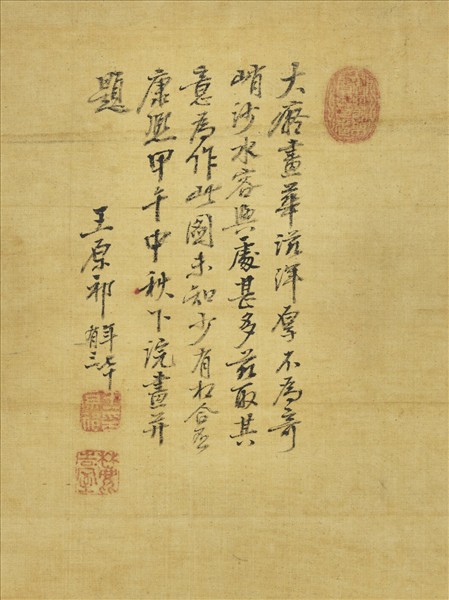 大癡畫華滋渾厚不為奇
峭沙水容與處甚多茲取其
意為作此圖未知少有相合否
康熙甲午中秋下浣畫并
題
王原祁
年七十
有三